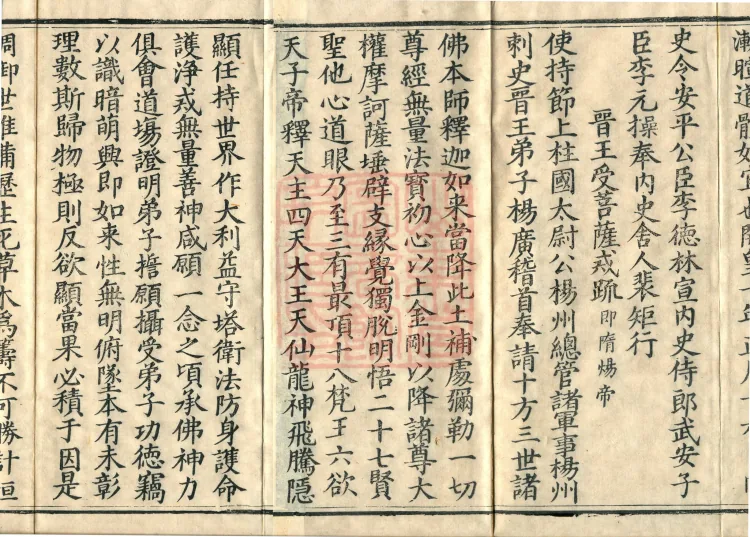 漸暄道體如宜也
史令安平公臣李德林宣內史侍郎武安子
臣李元操奉內史舍人裴矩行
晉王受菩薩戒疏即隋煬帝
使持節上柱國太尉公楊州總管諸軍事楊州
刺史晉王弟子楊廣稽首奉請十方三世諸
佛本師釋迦如来當降此土補處彌勒一切
尊經無量法寶初心以上金剛以降諸尊大
權摩訶薩埵辟支緣覺獨脫明悟二十七賢
聖他心道眼乃至三有最頂十八梵王六欲
天子帝釋天主四天大王天仙龍神飛騰隱
顯任持世界作大利益守塔衛法防身護命
護淨戒無量善神咸願一念之頃承佛神力
俱會道場證明弟子擔願攝受弟子功德竊
以識暗萌興即如来性無明俯墜本有未彰
理數斯歸物極則反欲顯當果必積于因是
調御世雄備歷生死草木為籌不可勝計恒